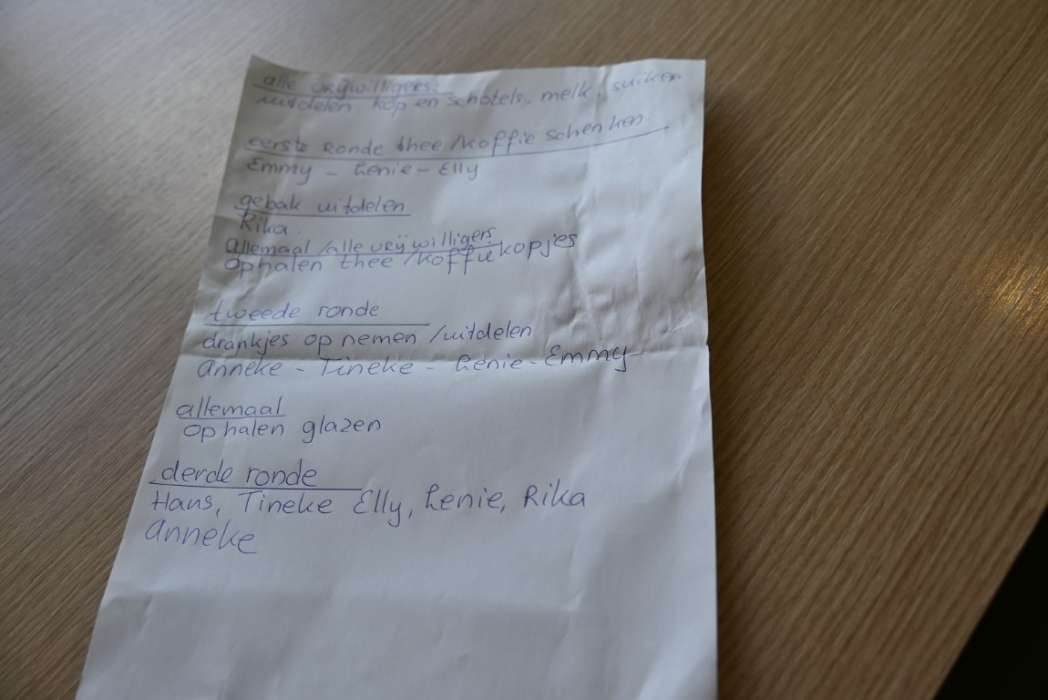 alle vrijwilligers:
uitdelen kop en schotels, melk, suiker
eerste ronde thee/koffie schenken
Emmy - Renie - Elly
gebak uitdelen
Rika.
allemaal/alle vrijwilligers
ophalen thee/koffiekopjes
tweede ronde
drankjes opnemen/uitdelen
Anneke - Tineke - Renie - Emmy
allemaal
ophalen glazen
derde ronde
Hans, Tineke Elly, Renie, Rika
Anneke